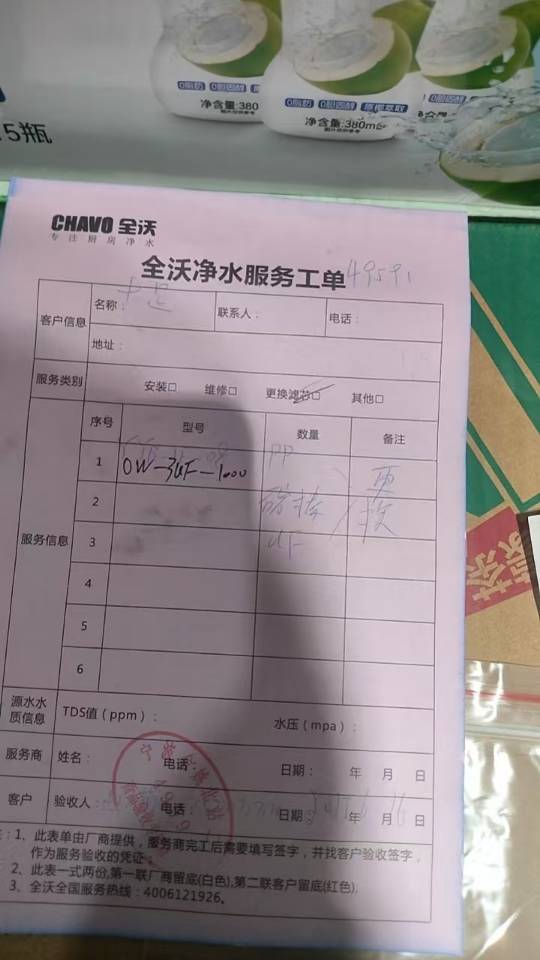 0脂肪 0胆固醇
0脂肪 0胆固醇 原椰萃取
0脂肪
净含量:380
净含量:380mL
5瓶
CHAVO 全沃
专注厨房净水
全沃净水服务工单 49591
客户信息 名称： 联系人： 电话：
地址：
服务类别 安装□ 维修□ 更换滤芯□ 其他□
服务信息 序号 型号 数量 备注
1 OW-3UF-1000 PP 更
2 碳棒 换
3 UF
4
5
6
源水水质信息 TDS值（ppm）： 水压（mpa）：
服务商 姓名： 电话 日期： 年 月 日
客户 验收人： 电话： 日期： 年 月 日
1、此表单由厂商提供，服务商完工后需要填写签字，并找客户验收签字，
作为服务验收的凭证；
2、此表一式两份,第一联厂商留底(白色),第二联客户留底(红色);
3、全沃全国服务热线：4006121926。